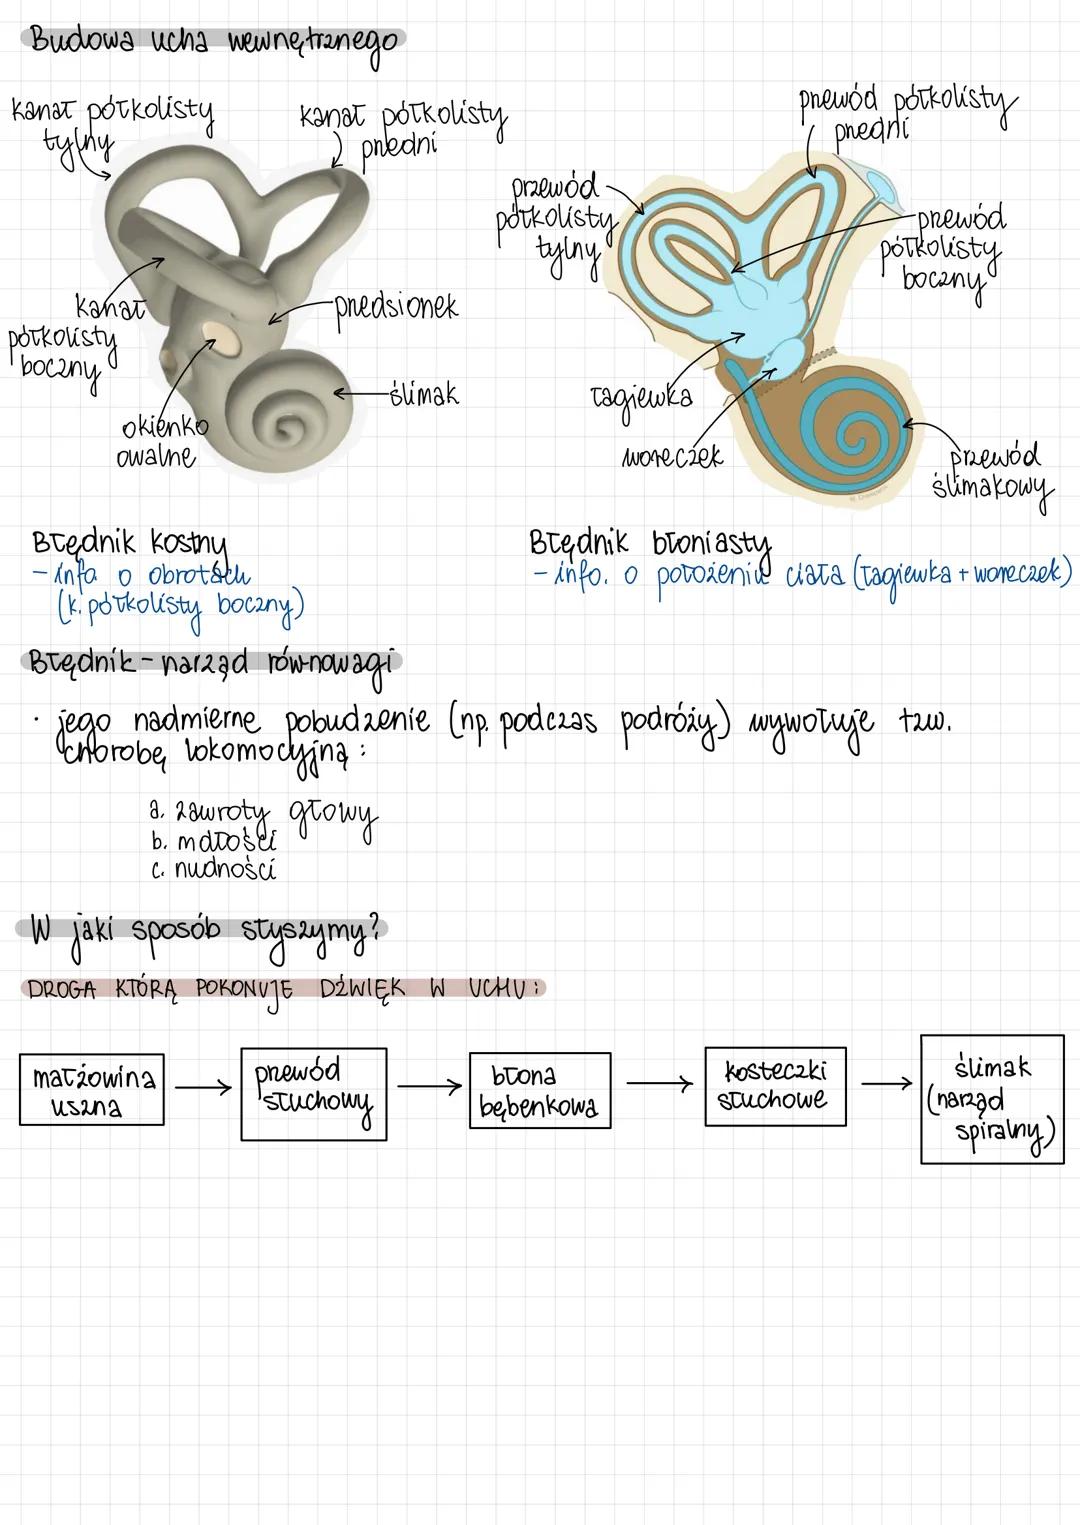 Budowa ucha wewnętrznego
kanał półkolisty
tylny
kanał półkolisty
przedni
kanał
półkolisty
boczny
przedsionek
ślimak
okienko
owalne
przewód półkolisty
przedni
przewód
półkolisty
tylny
przewód
półkolisty
boczny
łagiewka
woreczek
przewód
ślimakowy
Błędnik kostny
- info o obrotach
(k. półkolisty boczny)
Błędnik błoniasty
- info. o położeniu ciała (łagiewka + woreczek)
Błędnik - narząd równowagi
· jego nadmierne pobudzenie (np. podczas podróży) wywołuje tzw.
chorobę lokomocyjną :
a. zawroty głowy
b. mdłości
c. nudności
W jaki sposób słyszymy?
DROGA KTÓRĄ POKONUJE DŹWIĘK W UCHU :
małżowina
uszna
przewód
słuchowy
błona
bębenkowa
kosteczki
słuchowe
ślimak
(narząd
spiralny)